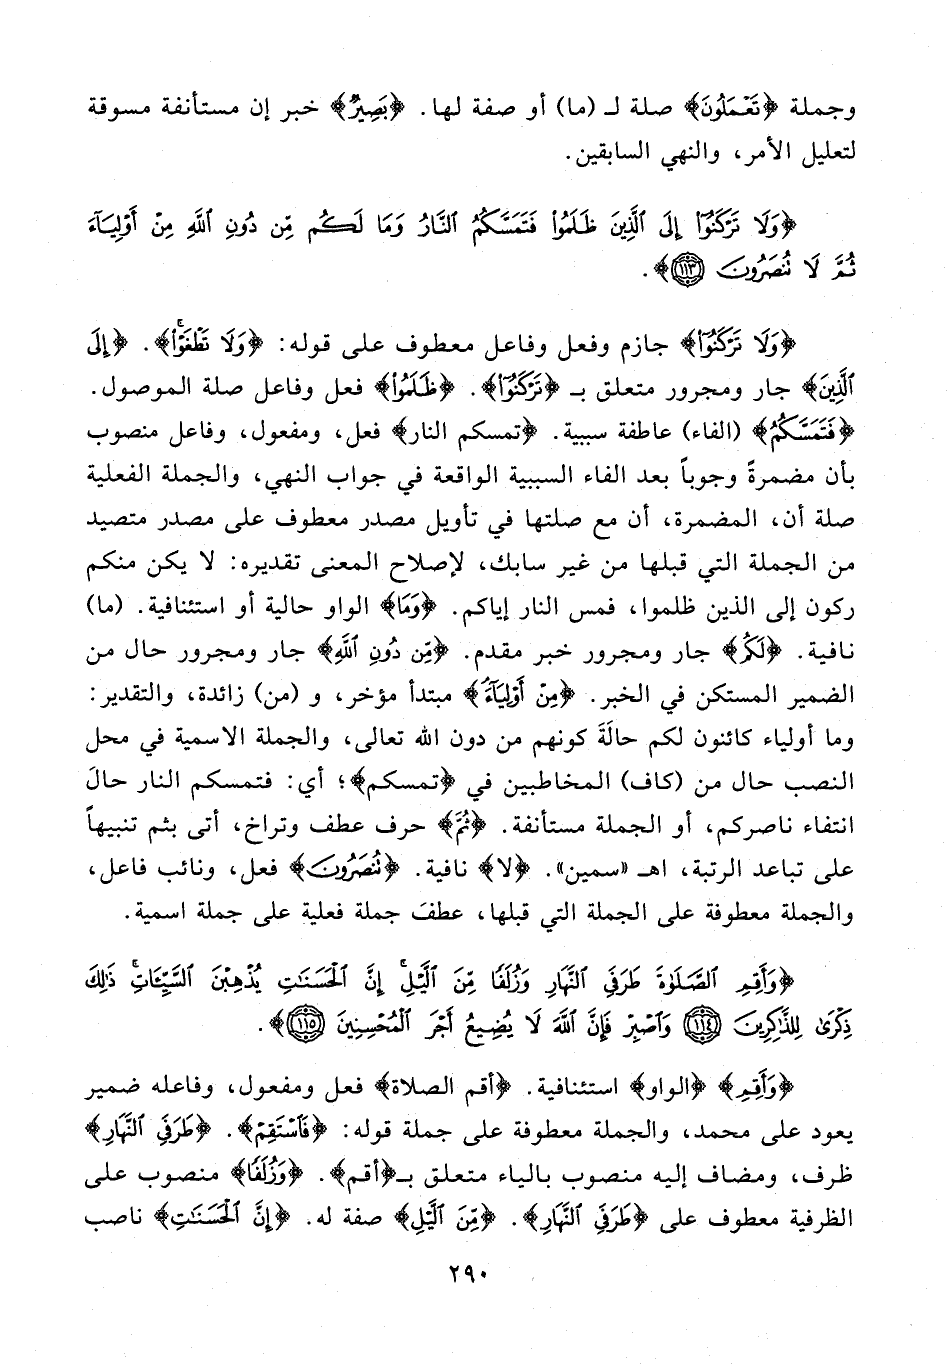 وجملة ﴿تَعْمَلُونَ﴾ صلة لـ (ما) أو صفة لها. ﴿بَصِيرٌ﴾ خبر إن مستأنفة مسوقة
لتعليل الأمر، والنهي السابقين.
﴿وَلَا تَرْكَنُوٓا۟ إِلَى ٱلَّذِينَ ظَلَمُوا۟ فَتَمَسَّكُمُ ٱلنَّارُ وَمَا لَكُم مِّن دُونِ ٱللَّهِ مِنْ أَوْلِيَآءَ
ثُمَّ لَا تُنصَرُونَ ﴿١١٣﴾﴾.
﴿وَلَا تَرْكَنُوٓا۟﴾ جازم وفعل وفاعل معطوف على قوله: ﴿وَلَا تَطْغَوْا۟ۚ﴾. ﴿إِلَى
ٱلَّذِينَ﴾ جار ومجرور متعلق بـ ﴿تَرْكَنُوٓا۟﴾. ﴿ظَلَمُوا۟﴾ فعل وفاعل صلة الموصول.
﴿فَتَمَسَّكُمُ﴾ (الفاء) عاطفة سببية. ﴿تمسكم النار﴾ فعل، ومفعول، وفاعل منصوب
بأن مضمرةً وجوباً بعد الفاء السببية الواقعة في جواب النهي، والجملة الفعلية
صلة أن، المضمرة، أن مع صلتها في تأويل مصدر معطوف على مصدر متصيد
من الجملة التي قبلها من غير سابك، لإصلاح المعنى تقديره: لا يكن منكم
ركون إلى الذين ظلموا، فمس النار إياكم. ﴿وَمَا﴾ الواو حالية أو استئنافية. (ما)
نافية. ﴿لَكُم﴾ جار ومجرور خبر مقدم. ﴿مِّن دُونِ ٱللَّهِ﴾ جار ومجرور حال من
الضمير المستكن في الخبر. ﴿مِنْ أَوْلِيَآءَ﴾ مبتدأ مؤخر، و (من) زائدة، والتقدير:
وما أولياء كائنون لكم حالَةَ كونهم من دون الله تعالى، والجملة الاسمية في محل
النصب حال من (كاف) المخاطبين في ﴿تمسكم﴾؛ أي: فتمسكم النار حالَ
انتفاء ناصركم، أو الجملة مستأنفة. ﴿ثُمَّ﴾ حرف عطف وتراخ، أتى بثم تنبيهاً
على تباعد الرتبة، اهـ «سمين». ﴿لا﴾ نافية. ﴿تُنصَرُونَ﴾ فعل، ونائب فاعل،
والجملة معطوفة على الجملة التي قبلها، عطفَ جملة فعلية على جملة اسمية.
﴿وَأَقِمِ ٱلصَّلَوٰةَ طَرَفَيِ ٱلنَّهَارِ وَزُلَفًا مِّنَ ٱلَّيْلِۚ إِنَّ ٱلْحَسَنَٰتِ يُذْهِبْنَ ٱلسَّيِّـَٔاتِۚ ذَٰلِكَ
ذِكْرَىٰ لِلذَّٰكِرِينَ ﴿١١٤﴾ وَٱصْبِرْ فَإِنَّ ٱللَّهَ لَا يُضِيعُ أَجْرَ ٱلْمُحْسِنِينَ ﴿١١٥﴾﴾.
﴿وَأَقِمِ﴾ ﴿الواو﴾ استئنافية. ﴿أقم الصلاة﴾ فعل ومفعول، وفاعله ضمير
يعود على محمد، والجملة معطوفة على جملة قوله: ﴿فَٱسْتَقِمْ﴾. ﴿طَرَفَيِ ٱلنَّهَارِ﴾
ظرف، ومضاف إليه منصوب بالياء متعلق بـ﴿أقم﴾. ﴿وَزُلَفًا﴾ منصوب على
الظرفية معطوف على ﴿طَرَفَيِ ٱلنَّهَارِ﴾. ﴿مِّنَ ٱلَّيْلِ﴾ صفة له. ﴿إِنَّ ٱلْحَسَنَٰتِ﴾ ناصب
٢٩٠